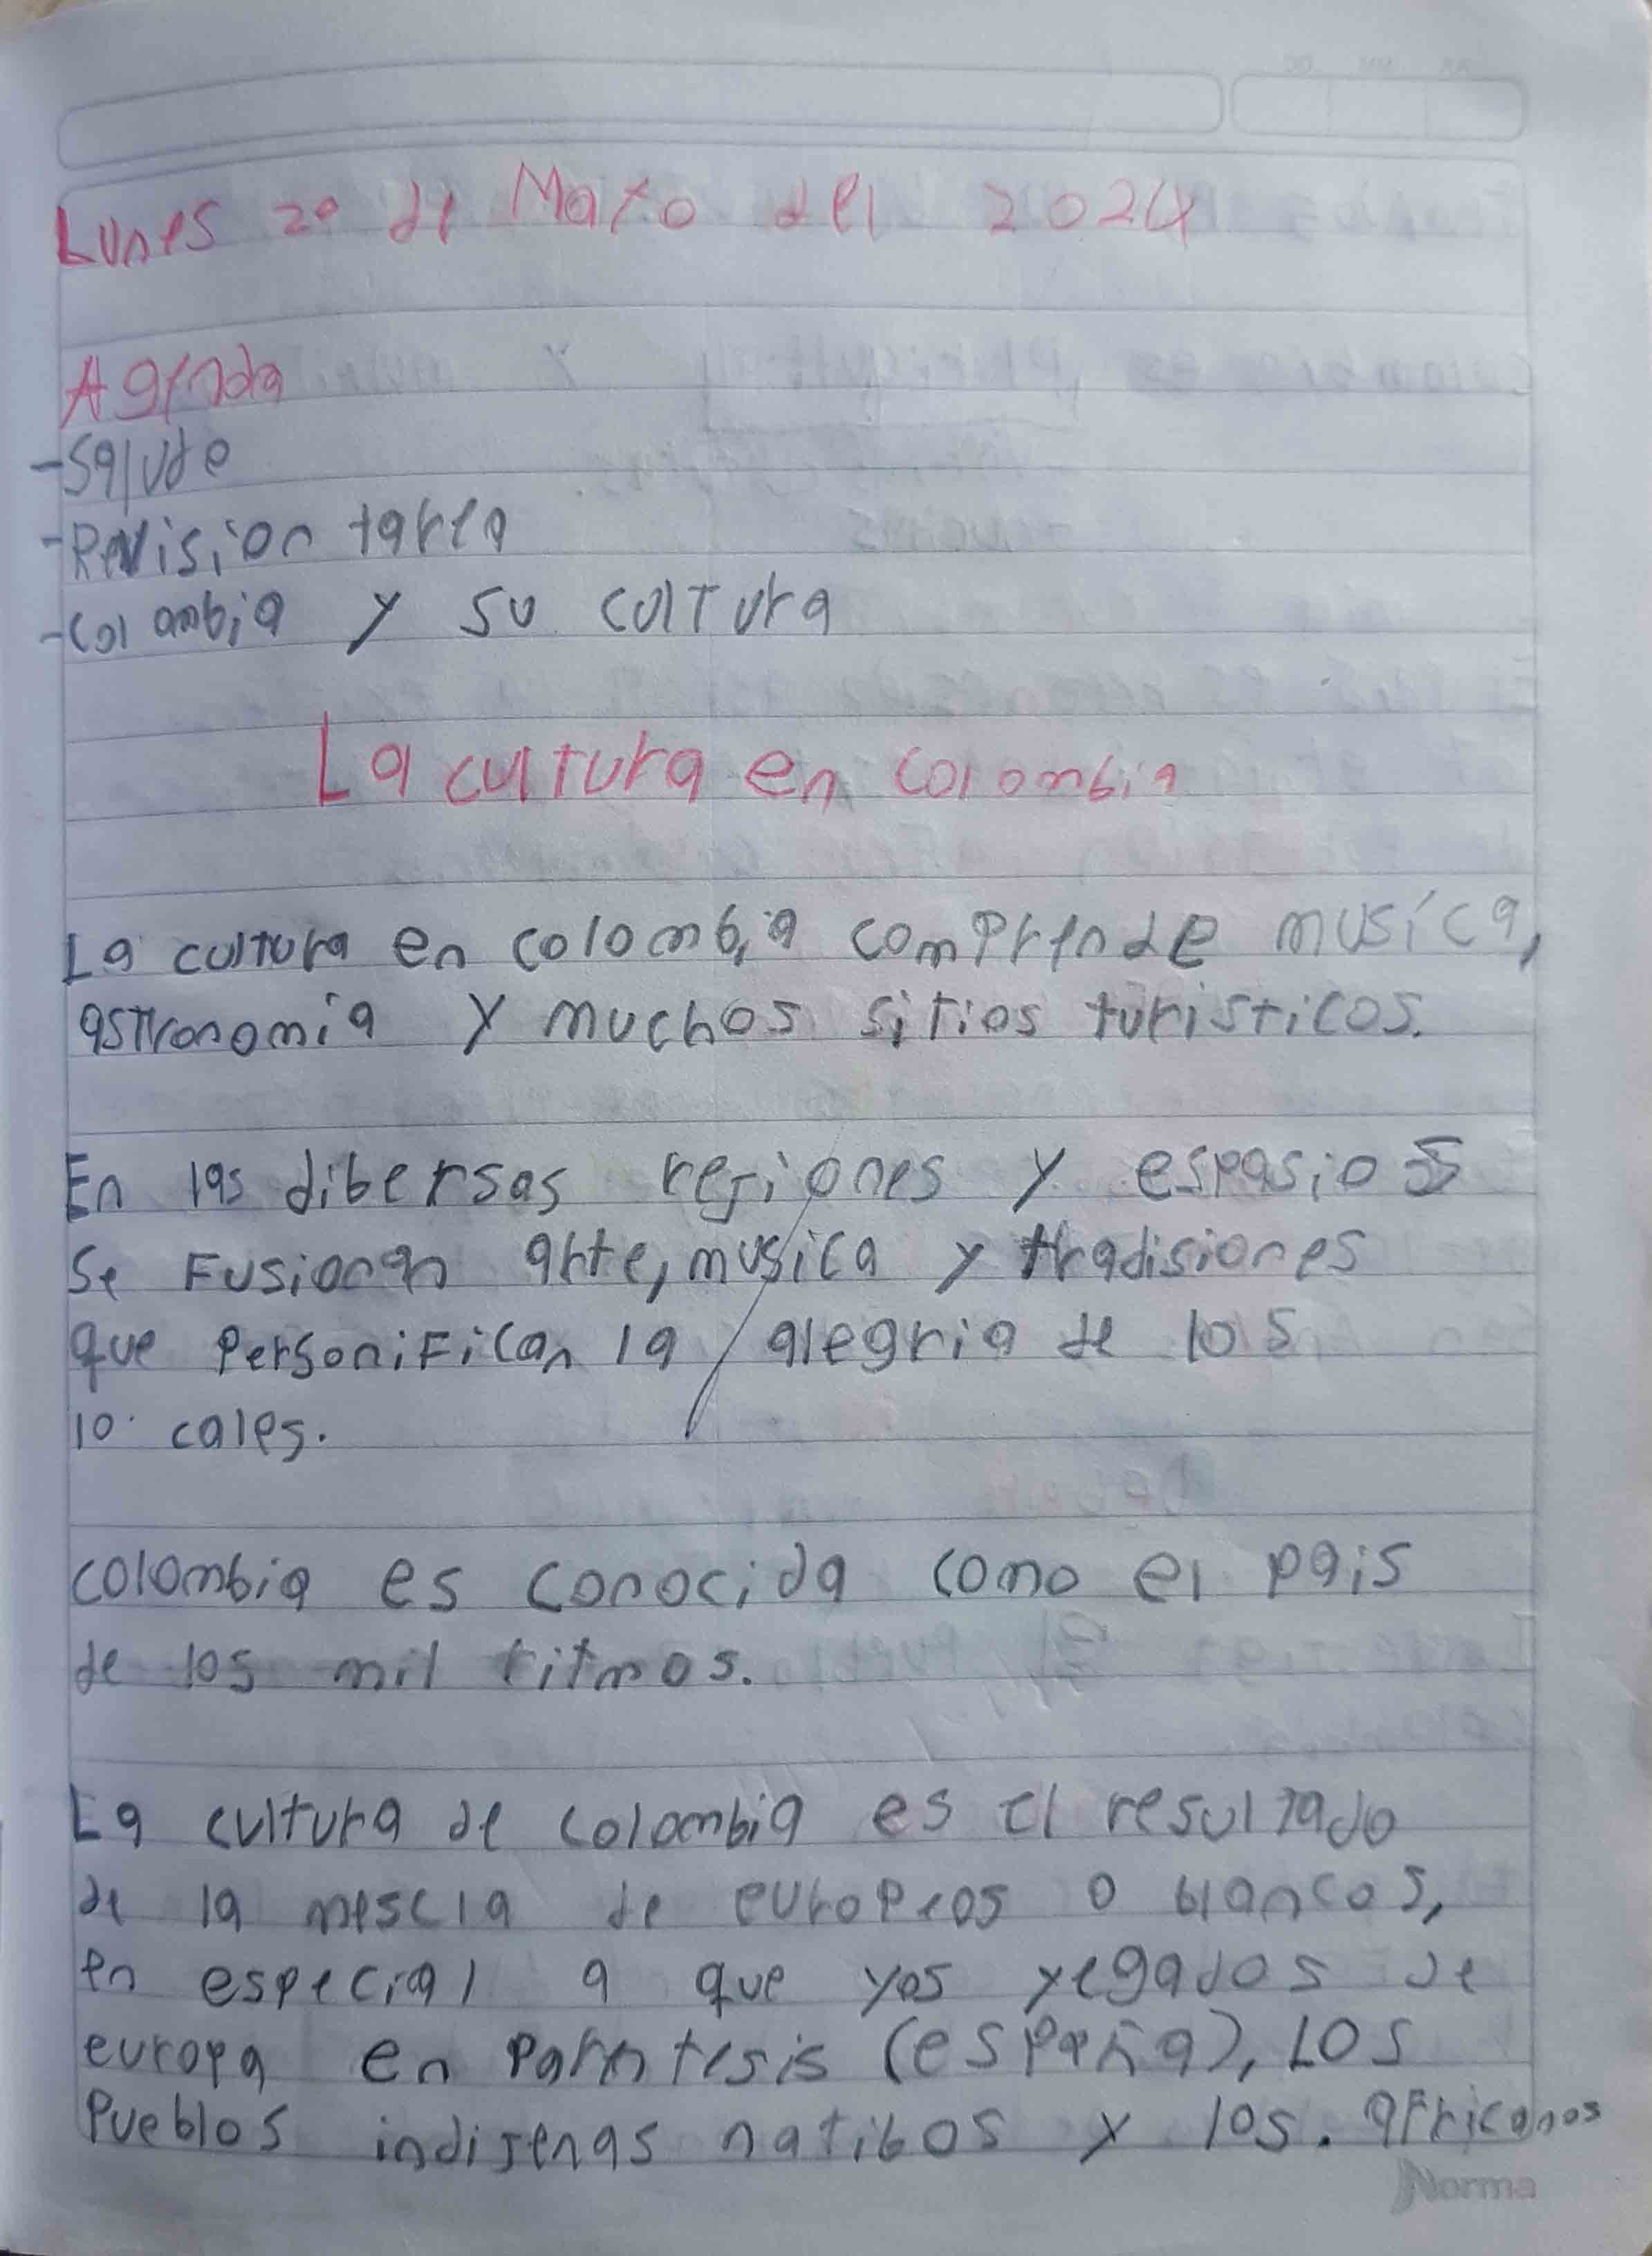 Lunes 20 de Mayo del 2024
Agenda
-Salude
-Revision tarea
-Colombia y su cultura
La cultura en colombia
La cultura en colombia comprende musíca,
astronomia y muchos sitios turisticos.
En las dibersas rejiones y espasios
se Fusionan arte, musica y tradisiones
que personiFican la alegria de los
lo cales.
colombia es conocida como el pais
de los mil ritmos.
La cultura de colombia es el resultado
de la mescla de europeos o blancos,
en especial a que yos yegados de
europa en parentesis (españa), Los
Pueblos indijenas natibos y los. aFricanos
Norma